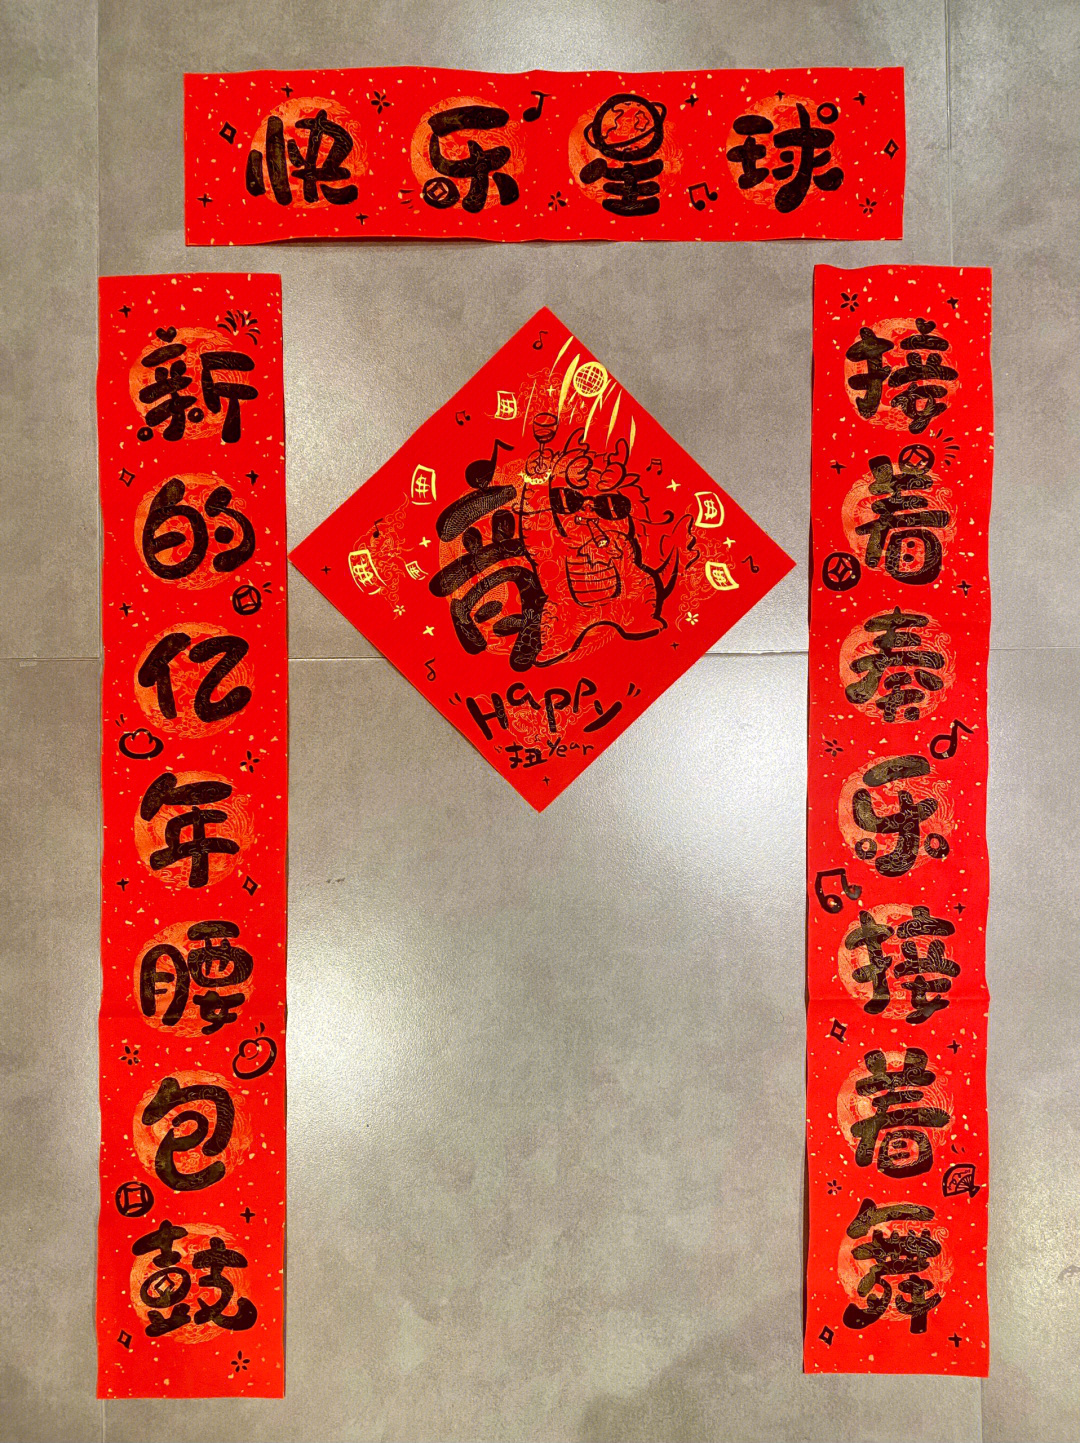 快乐星球
新的亿年腰包鼓
接着奏乐接着舞
"Happy"
扭Year